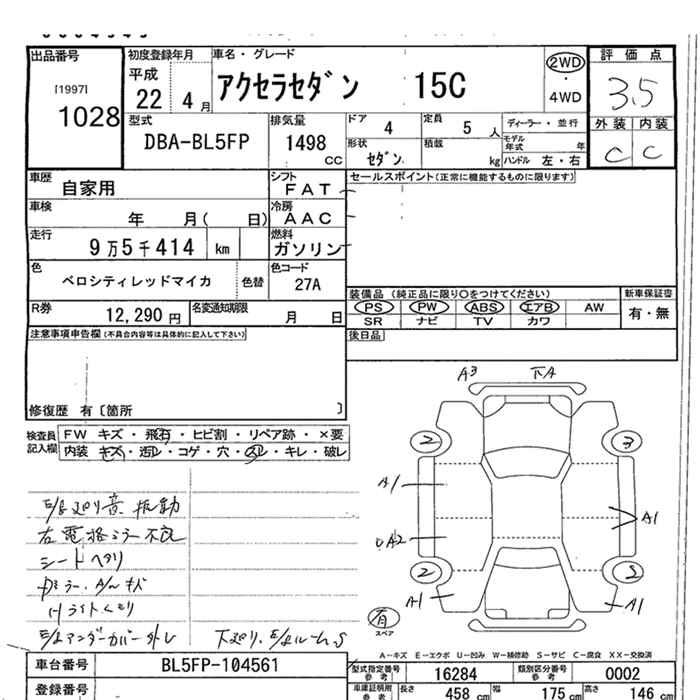 出品番号 初度登録年月 車名・グレード 評価点
[1997] 1028 平成 22 4月 アクセラセダン 15C 2WD 4WD 3.5
型式 排気量 ドア 4 定員 5 人 ディーラー・並行 外装 内装
DBA-BL5FP 1498 CC 形状 セダン 積載 kg モデル年式 年 ハンドル 左・右 C C
車歴 自家用 シフト FAT セールスポイント(正常に機能するものに限ります)
車検 年 月( 日) 冷房 AAC
走行 9万5千414 km 燃料 ガソリン
色 ベロシティレッドマイカ 色替 色コード 27A
装備品 (純正品に限り○をつけてください) 新車保証書
R券 12,290円 名変通知期限 月 日 PS PW ABS エアB AW 有・無
SR ナビ TV カワ
注意事項申告欄(不具合内容等は具体的に記入して下さい) 後日品
修復歴 有〔箇所 〕
検査員記入欄 FW キズ・飛石・ヒビ割・リペア跡・×要
内装 キズ・汚レ・コゲ・穴・スレ・キレ・破レ
A3 下A
2 3
A1
A1
A2
2 2
A1 A1
E/G廻り音 振動
右電格ミラー不良
シートヘタリ
Hライトくもり
E/Gアンダーカバー外レ 下廻り、E/GルームS
有 スペア
A-キズ E-エクボ U-凹み W-補修跡 S-サビ C-腐食 XX-交換済
車台番号 BL5FP-104561 型式指定番号 参考 16284 類別区分番号 参考 0002
登録番号 車庫証明用 参考 長さ 458 cm 幅 175 cm 高さ 146 cm